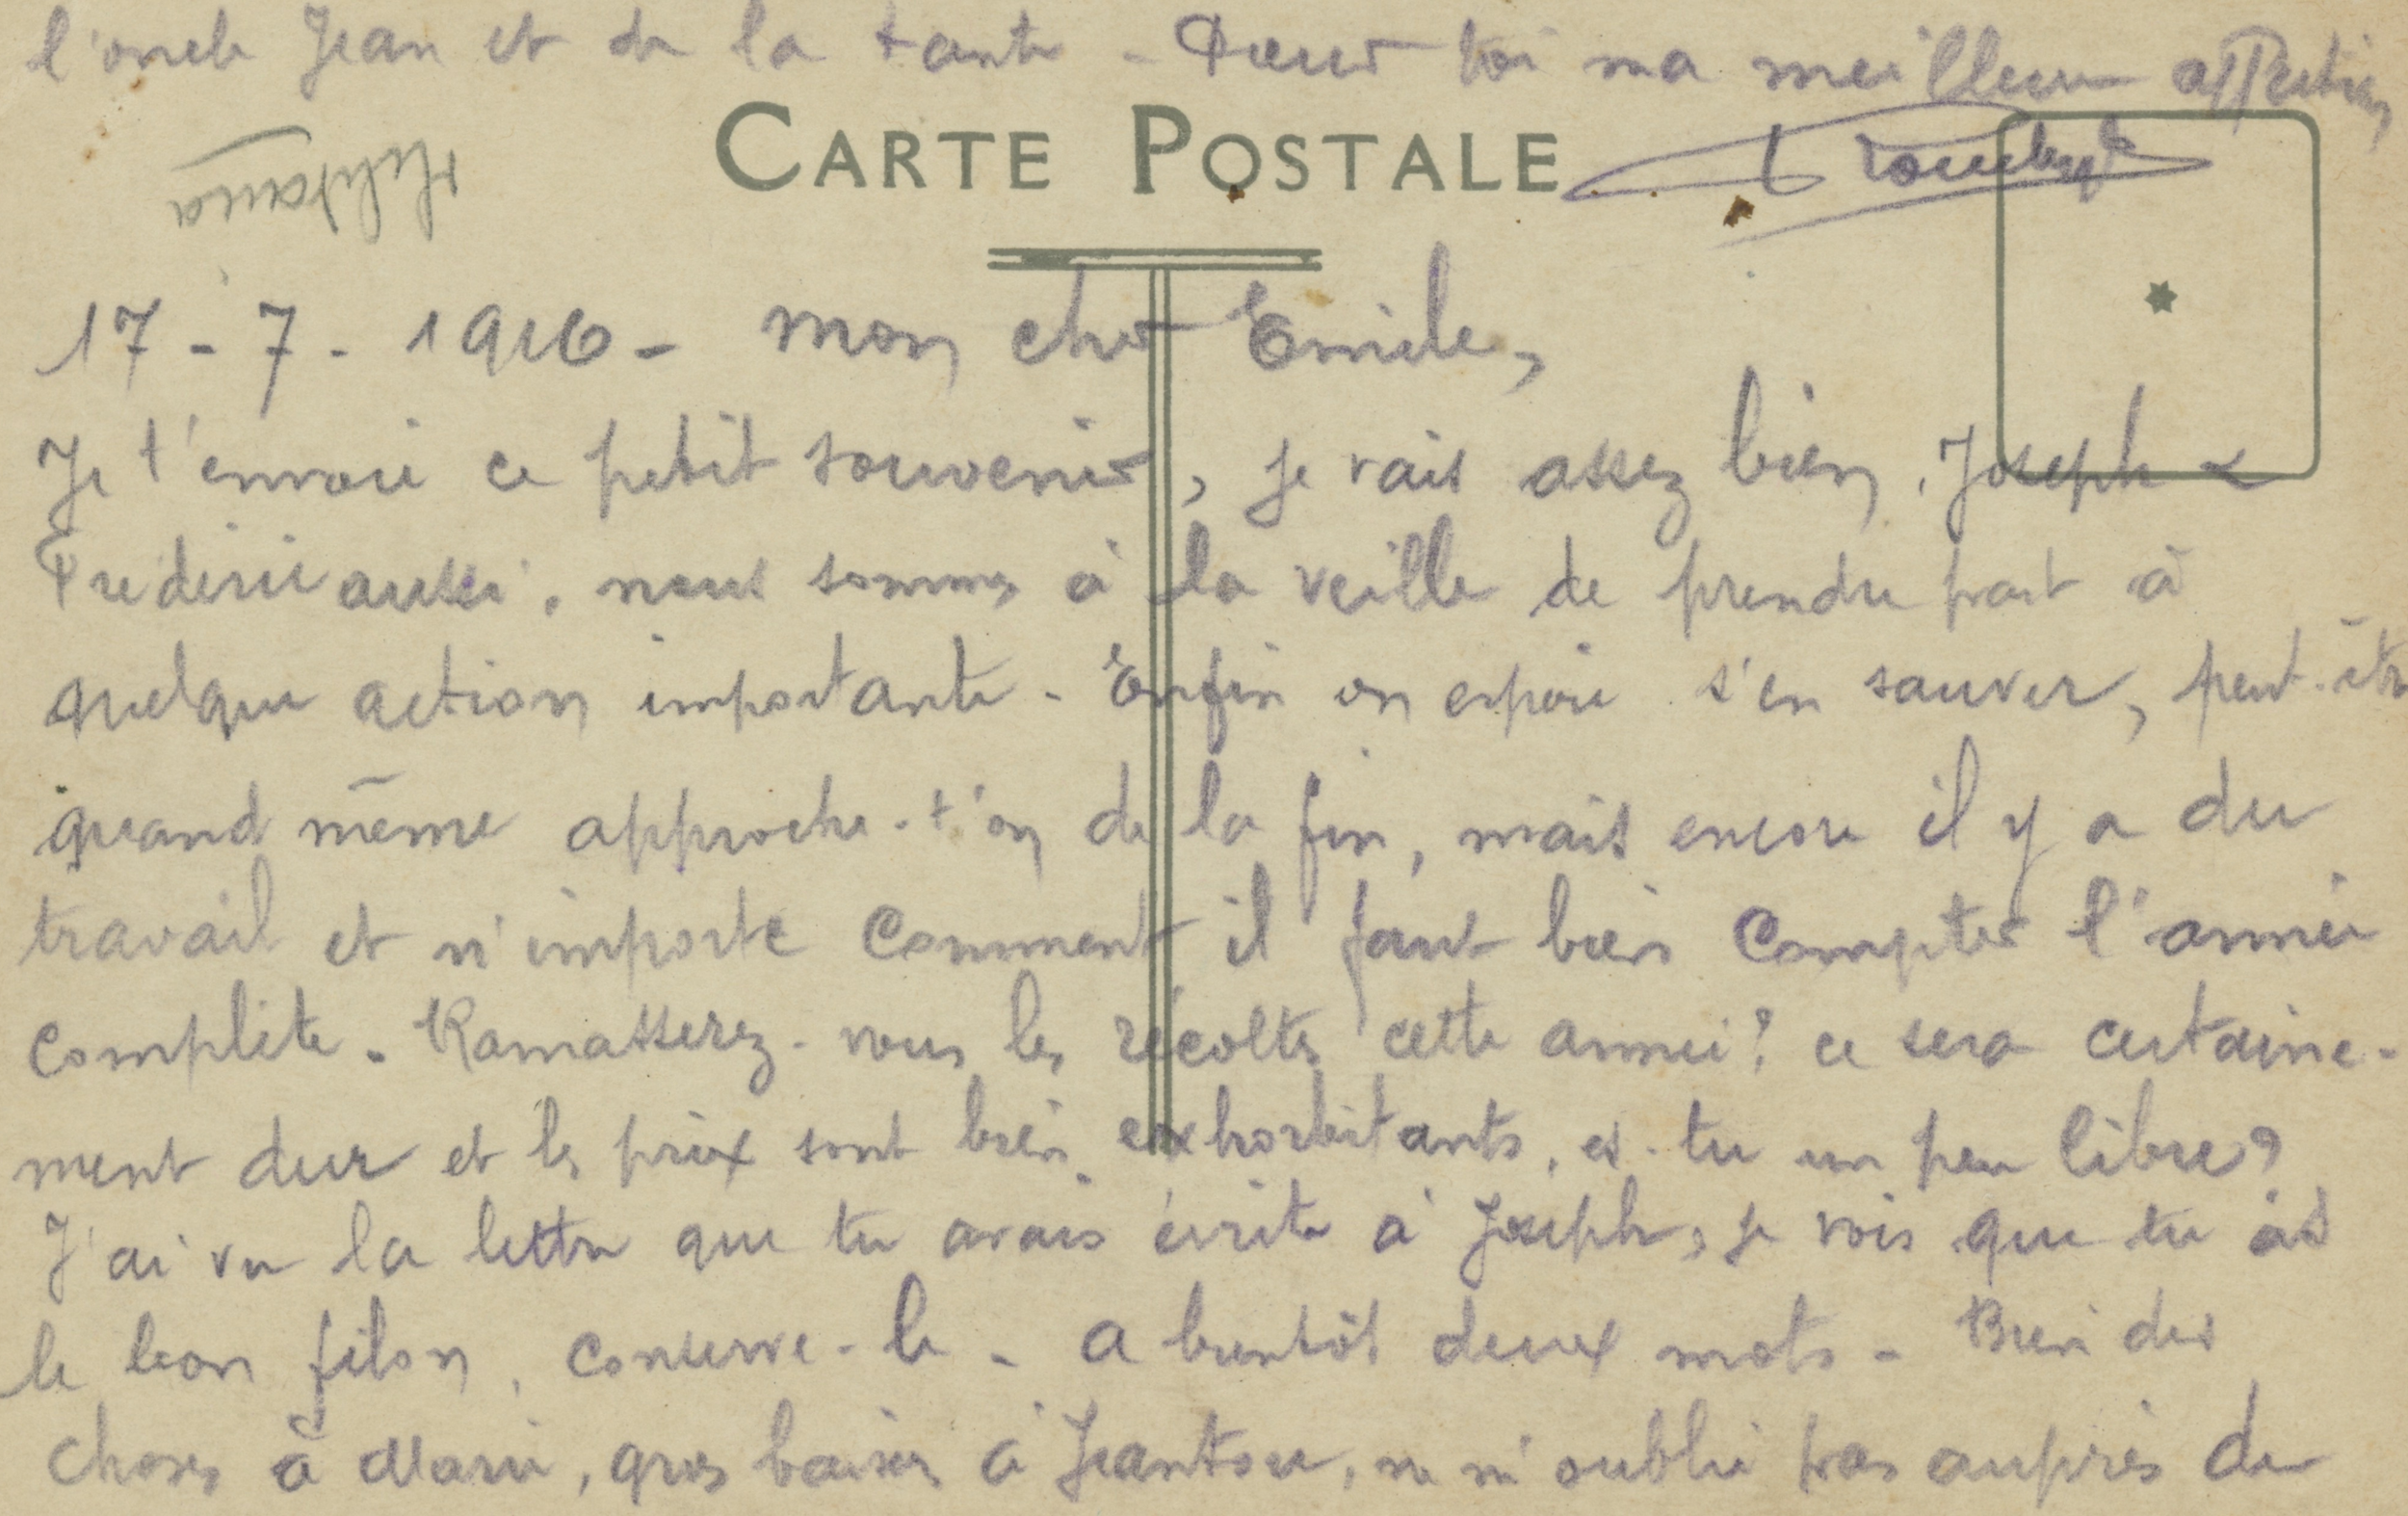 l'oncle Jean et de la tante - Pour toi ma meilleure affection
CARTE POSTALE
17 - 7 - 1916 - Mon cher Emile,
Je t'envoie ce petit souvenir, je vais assez bien, Joseph &
Frederic aussi. nous sommes à la veille de prendre part à
quelque action importante - Enfin on espoir s'en sauver, peut-être
quand même approche-t'on de la fin, mais encore il y a du
travail et n'importe comment il faut bien compter l'année
complète - Ramasserez-vous les récoltes cette année? ce sera certaine-
ment dur et les prix sont bien exhorbitants, es-tu un peu libre?
J'ai vu la lettre que tu avais écrite à Joseph, je vois que tu as
le bon filon, conserve-le - a bientôt deux mots - Bien des
choses à Marie, gros baisers à Jeantou, ne m'oublie pas auprès de